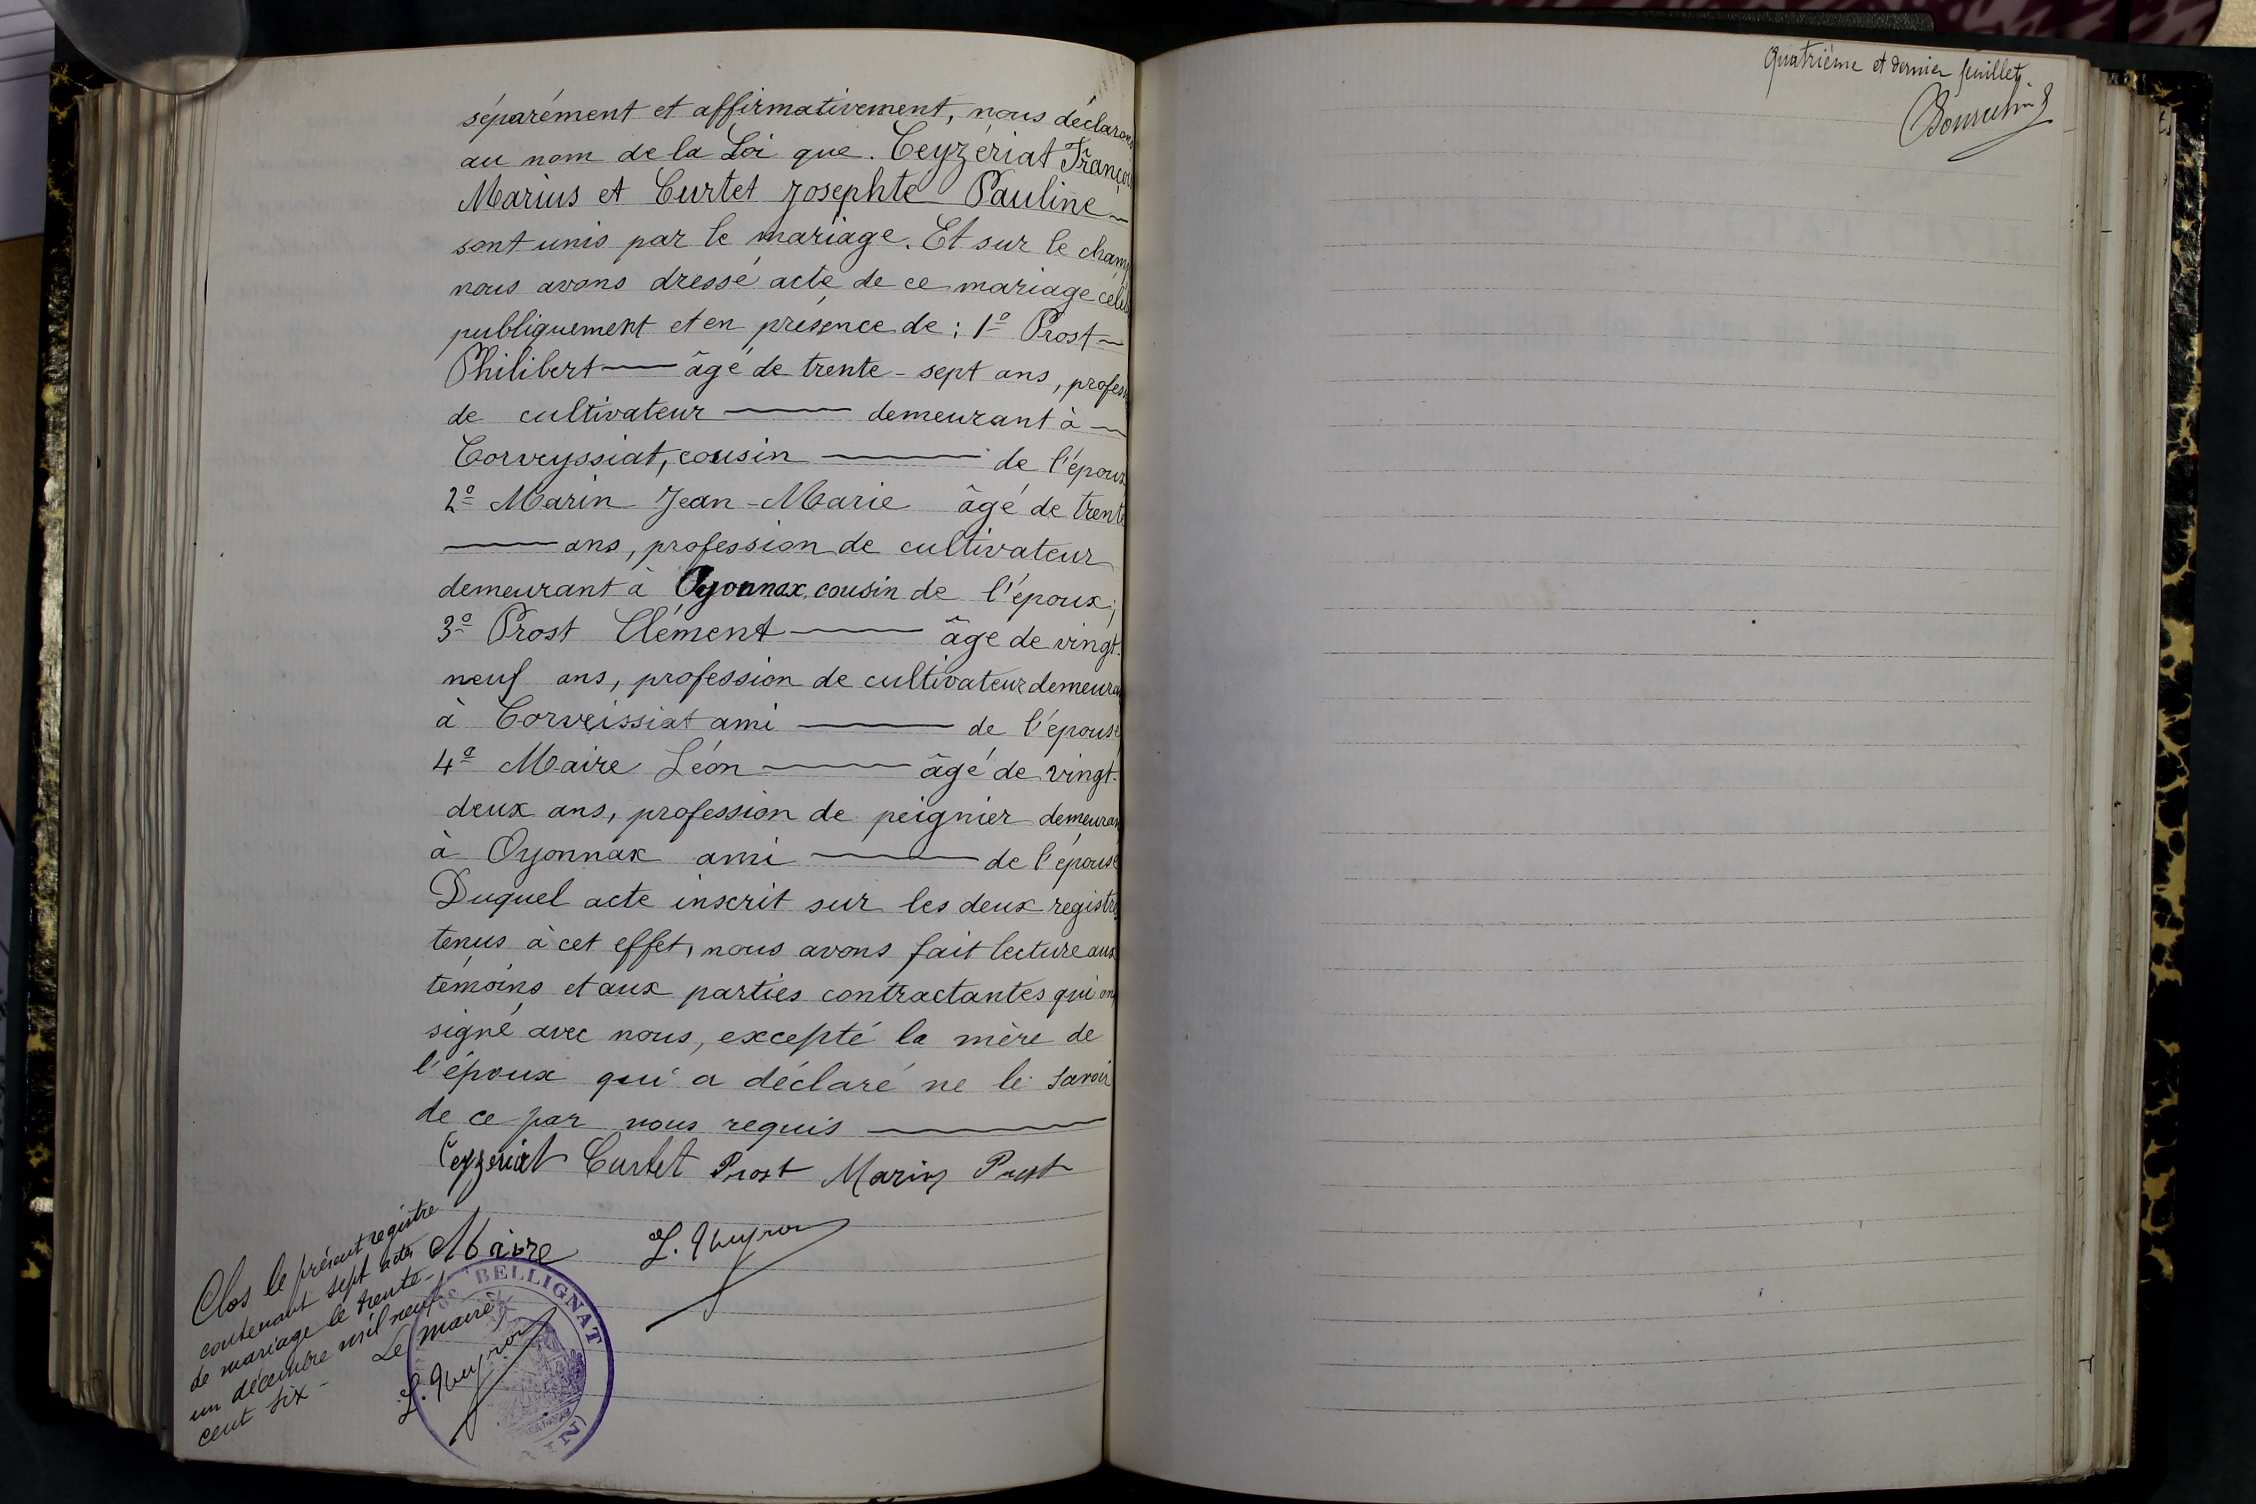 séparément et affirmativement, nous déclarons
au nom de la Loi que. Ceyzériat François
Marius et Curtet Josephte Pauline
sont unis par le mariage. Et sur le champ
nous avons dressé acte de ce mariage célé
publiquement et en présence de : 1º Prost
Philibert âgé de trente-sept ans, profess
de cultivateur demeurant à
Corveyssiat, cousin de l'époux
2º Marin Jean-Marie âgé de trente
ans, profession de cultivateur
demeurant à Oyonnax, cousin de l'époux;
3º Prost Clément âgé de vingt-
neuf ans, profession de cultivateur demeuran
à Corveissiat ami de l'épouse
4º Maire Léon âgé de vingt-
deux ans, profession de peignier demeuran
à Oyonnax ami de l'épouse
Duquel acte inscrit sur les deux registre
tenus à cet effet, nous avons fait lecture aux
témoins et aux parties contractantes qui on
signé avec nous, excepté la mère de
l'époux qui a déclaré ne le savoir
de ce par nous requis
Ceyzeriat Curtet Prost Marin Prost
Maire
Clos le présent registre
contenant sept actes
de mariage le trente-
un décembre mil neuf
cent six -
Le maire,
BELLIGNAT
Quatrième et dernier feuillet.